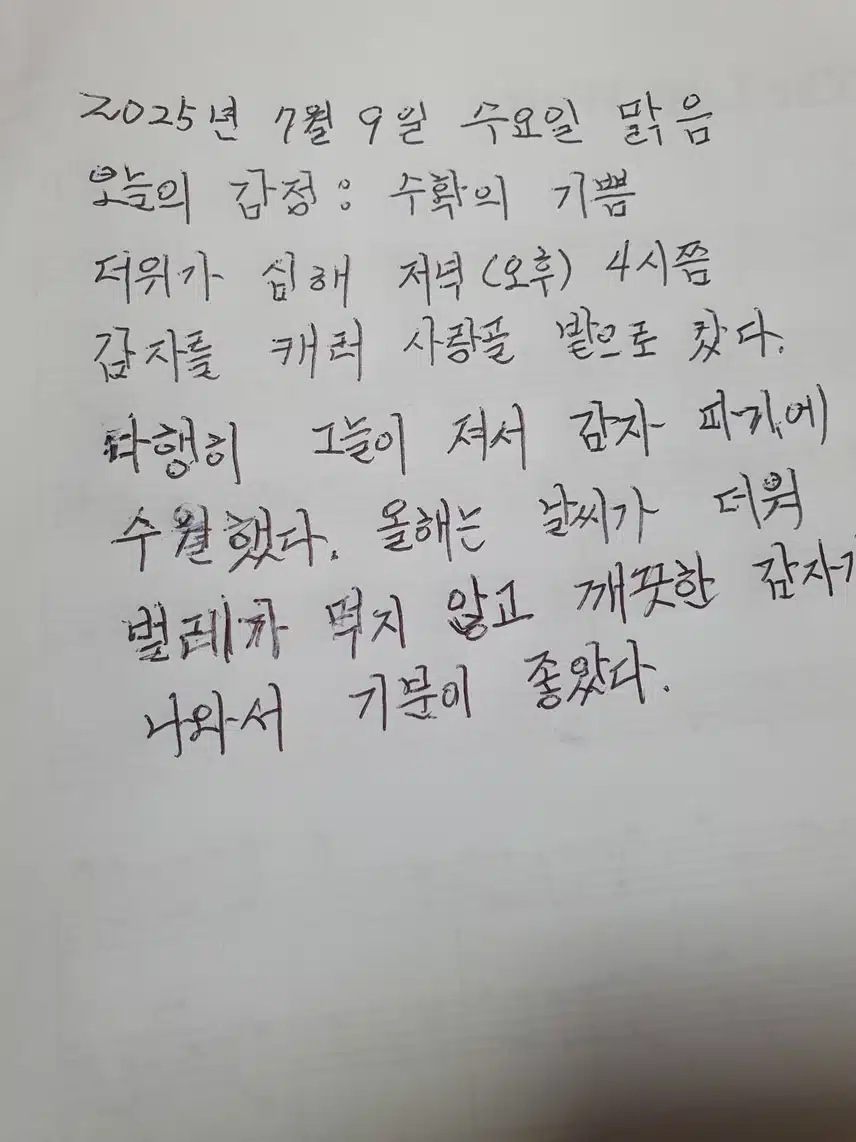 2025년 7월 9일 수요일 맑음
오늘의 감정: 수확의 기쁨
더위가 심해 저녁(오후) 4시쯤
감자를 캐러 사랑골 밭으로 갔다.
다행히 그늘이 져서 감자 파기에
수월했다. 올해는 날씨가 더워
벌레가 먹지 않고 깨끗한 감자가
나와서 기분이 좋았다.